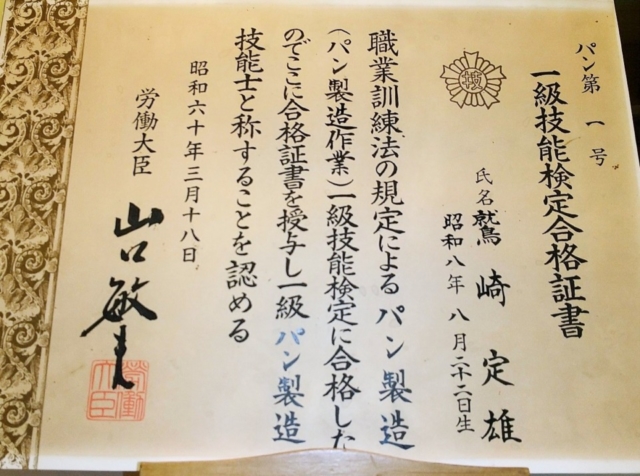 パン第一号
一級技能検定合格証書
氏名 鷲崎定雄
昭和八年八月二十二日生
職業訓練法の規定によるパン製造
(パン製造作業)一級技能検定に合格した
のでここに合格証書を授与し一級パン製造
技能士と称することを認める
昭和六十年三月十八日
労働大臣
山口敏夫
労働大臣